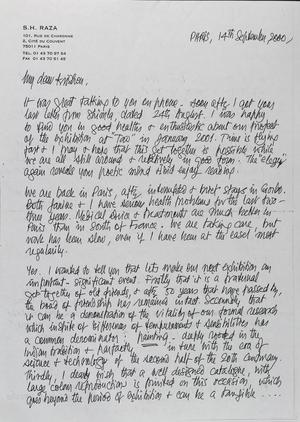 S.H. RAZA
101, RUE DE CHARONNE
2, CITÉ DU COUVENT
75011 PARIS
TEL 01 43 70 97 54
FAX 01 43 70 51 48
PARIS, 14th September 2000
My dear Krishen,
It was great talking to you on phone. Soon after I got your
last letter from Shimla, dated 24th August. I was happy
to find you in good health & enthusiastic about our project
of the exhibition at "Tao" in January 2001. Time is flying
past & I may & hope that this get together is possible while
we are all still around & relatively in good form. The "elegy"
again reveals your poetic mind. I did enjoy reading.
We are back in Paris, after & brief stays in Gorbio.
Both Janine & I have serious health problems for the last two-
three years. Medical advice & treatments are much better in
Paris than in South of France. We are taking care, but
work has been slow, even if I have been at the easel most
regularly.
Yes. I wanted to tell you that lets make our next exhibition an
important - significant event. Firstly that it is a fraternal
get-together of old friends & after 50 years that have passed by
the bond of friendship has remained intact. Secondly that
it can be a demonstration of the vitality of our formal research
which inspite of differences of temperaments & sensibilities has
a common denominator: painting - deeply rooted in the
Indian tradition & in tune with the era of
science & technology of the second half of the 20th century.
Thirdly, I dearly wish that a well designed catalogue, with
large colour reproduction is printed on this occasion, which
goes beyond the period of exhibition & can be a tangible ....